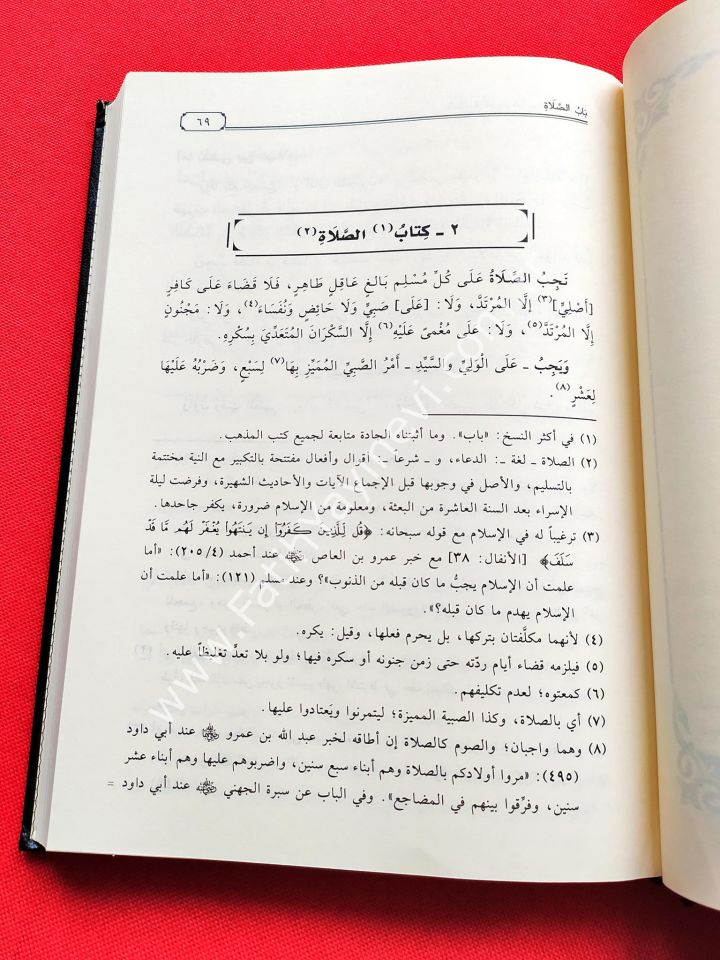 بَابُ الصَّلَاةِ
٦٩
٢ - كِتَابُ (١) الصَّلَاةِ (٢)
تَجِبُ الصَّلَاةُ عَلَى كُلِّ مُسْلِمٍ بَالِغٍ عَاقِلٍ طَاهِرٍ، فَلَا قَضَاءَ عَلَى كَافِرٍ
[أَصْلِيٍّ] (٣) إِلَّا المُرْتَدَّ، وَلَا: [عَلَى] صَبِيٍّ وَلَا حَائِضٍ وَنُفَسَاءَ (٤)، وَلَا: مَجْنُونٍ
إِلَّا المُرْتَدَّ (٥)، وَلَا: عَلَى مُغْمىً عَلَيْهِ (٦) إِلَّا السَّكْرَانَ المُتَعَدِّيَ بِسُكْرِهِ.
وَيَجِبُ - عَلَى الْوَلِيِّ والسَّيِّدِ - أَمْرُ الصَّبِيِّ المُمَيِّزِ بِهَا (٧) لِسَبْعٍ، وَضَرْبُهُ عَلَيْهَا
لِعَشْرٍ (٨).
(١) في أكثر النسخ: «باب». وما أثبتناه الجادة متابعة لجميع كتب المذهب.
(٢) الصلاة - لغة -: الدعاء، و - شرعاً -: أقوال وأفعال مفتتحة بالتكبير مع النية مختتمة
بالتسليم، والأصل في وجوبها قبل الإجماع الآيات والأحاديث الشهيرة، وفرضت ليلة
الإسراء بعد السنة العاشرة من البعثة، ومعلومة من الإسلام ضرورة، يكفر جاحدها.
(٣) ترغيباً له في الإسلام مع قوله سبحانه: ﴿قُل لِّلَّذِينَ كَفَرُوٓا۟ إِن يَنتَهُوا۟ يُغْفَرْ لَهُم مَّا قَدْ
سَلَفَ﴾ [الأنفال: ٣٨] مع خبر عمرو بن العاص ﷺ عند أحمد (٢٠٥/٤): «أما
علمت أن الإسلام يجبُّ ما كان قبله من الذنوب»؟ وعند مسلم (١٢١): «أما علمت أن
الإسلام يهدم ما كان قبله؟».
(٤) لأنهما مكلَّفتان بتركها، بل يحرم فعلها، وقيل: يكره.
(٥) فيلزمه قضاء أيام ردّته حتى زمن جنونه أو سكره فيها؛ ولو بلا تعدٍّ تغليظاً عليه.
(٦) كمعتوه؛ لعدم تكليفهم.
(٧) أي بالصلاة، وكذا الصبية المميزة؛ ليتمرنوا ويَعتادوا عليها.
(٨) وهما واجبان؛ والصوم كالصلاة إن أطاقه لخبر عبد الله بن عمرو عند أبي داود
(٤٩٥): «مروا أولادكم بالصلاة وهم أبناء سبع سنين، واضربوهم عليها وهم أبناء عشر
سنين، وفرِّقوا بينهم في المضاجع». وفي الباب عن سبرة الجهني عند أبي داود =
www.Fatihyayinevi.com